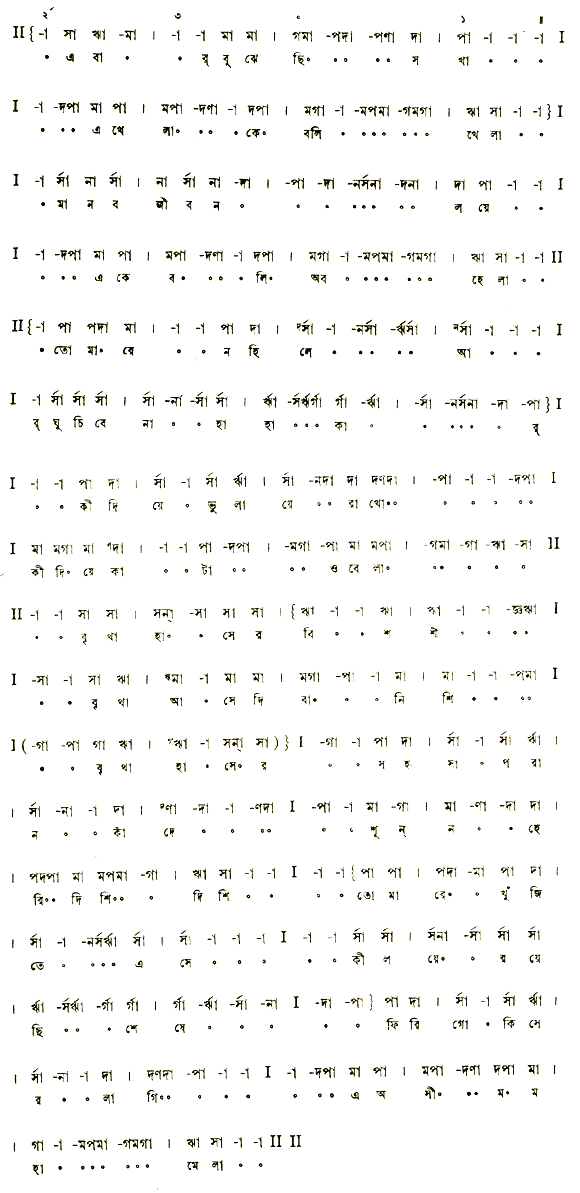 ২´ ৩ ০ ১ II
II {-া সা ঋা -মা । -া -া মা মা । গমা -পদা -পণা দা । পা -া -া -া I
• এ বা • • র্ বু ঝে ছি• •• •• স খা • • •
I -া -দপা মা পা । মপা -দণা -া দপা । মগা -া -মপমা -গমগা । ঋা সা -া -া } I
• •• এ খে লা• •• • কে• বলি • ••• ••• খে লা • •
I -া র্সা না র্সা । না র্সা না -দা । -পা -দা -নর্সনা -দনা । দা পা -া -া I
• মা ন ব জী ব ন • • • ••• •• ল য়ে • •
I -া -দপা মা পা । মপা -দণা -া দপা । মগা -া -মপমা -গমগা । ঋা সা -া -া II
• •• এ কে ব• •• • লি• অব • ••• ••• হে লা • •
II {-া পা পদা মা । -া -া পা দা । র্সা -া -নর্সা -র্ঋর্সা । র্সা -া -া -া I
• তো মা• রে • • ন হি লে • •• •• আ • • •
I -া র্সা র্সা র্সা । র্সা -না -র্সা র্সা । র্ঋা -র্সর্ঋর্গা র্গা -র্ঋা । -র্সা -নর্সনা -দা -পা } I
র্ ঘু চি বে না • • হা হা ••• কা • • ••• • র্
I -া -া পা দা । র্সা -া র্সা র্ঋা । র্সা -নদা দা দণদা । -পা -া -া -দপা I
• • কী দি য়ে • ভু লা য়ে •• রা খো•• • • • ••
I মা মগা মা দা । -া -া পা -দপা । -মগা -পা মা মপা । -গমা -গা -ঋা -সা II
কী দি• য়ে কা • • টা •• •• • ও বেলা• •• • • •
II -া -া সা সা । সন্‌া -সা সা সা । {ঋা -া -া ঋা । ঋা -া -া -জ্ঞঋা I
• • বৃ থা হা• • সে র বি • • শ শী • • ••
I -সা -া সা ঋা । মা -া মা মা । মগা -পা -া মা । মা -া -া -পমা I
• • বৃ থা আ • সে দি বা• • • নি শি • • ••
I (-গা -পা গা ঋা । ঋা -া সন্‌া সা)} I -গা -া পা দা । র্সা -া র্সা র্ঋা ।
• • বৃ থা হা • সে• র • • স হ সা • প রা
। র্সা -না -া দা । ণা -দা -া -ণদা I -পা -া মা -গা । মা -ণা -দা দা ।
ন • • কাঁ দে • • •• • • শূ ন্ ন • • হে
। পদপা মা মপমা -গা । ঋা সা -া -া I -া -া {পা পা । পদা -মা পা দা ।
রি•• দি শি•• • দি শি • • • • তো মা রে• • খুঁ জি
। র্সা -া -নর্সর্ঋর্সা র্সা । র্সা -া -া -া I -া -া র্সা র্সা । র্সনা -র্সা র্সা র্সা
তে • •••• এ সে • • • • • কী ল য়ে• • র য়ে
। র্ঋা -র্সর্ঋা -র্গা র্গা । র্গা -র্ঋা -র্সা -না I -দা -পা } পা দা । র্সা -া র্সা র্ঋা ।
ছি •• • শে ষে • • • • • ফি রি গো • কি সে
। র্সা -না -া দা । দণদা -পা -া -া I -া -দপা মা পা । মপা -দণা দপা মা ।
র • • লা গি•• • • • • •• এ অ সী• •• ম• ম
। গা -া -মপমা -গমগা । ঋা সা -া -া II II
হা • ••• ••• মে লা • •